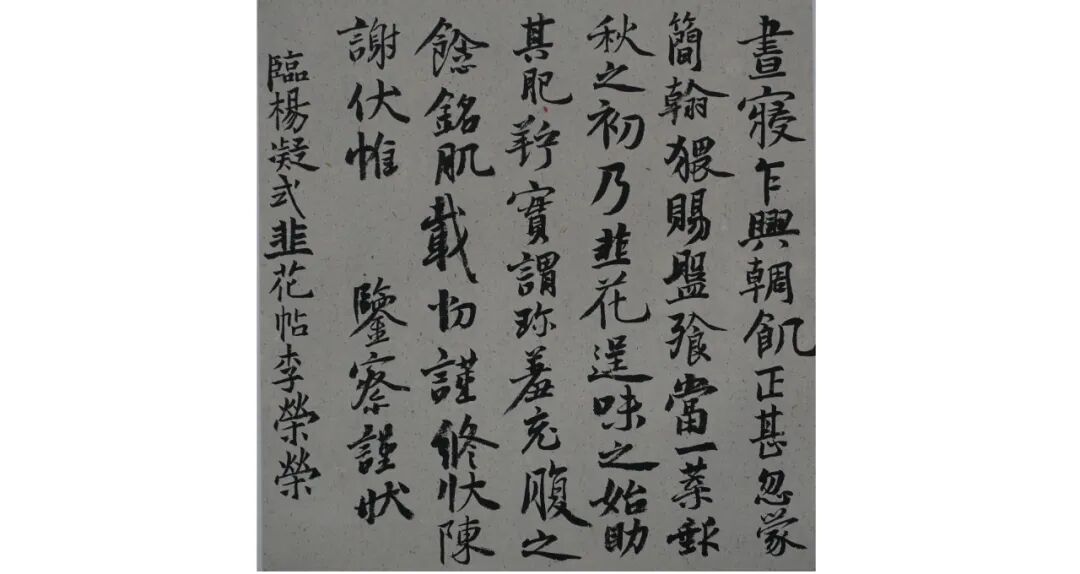 晝寢乍興輖飢正甚忽蒙
簡翰猥賜盤飧當一葉報
秋之初乃韭花逞味之始助
其肥羜實謂珍羞充腹之
餘銘肌載切謹修狀陳
謝伏惟 鑒察謹狀
臨楊凝式韭花帖李榮榮